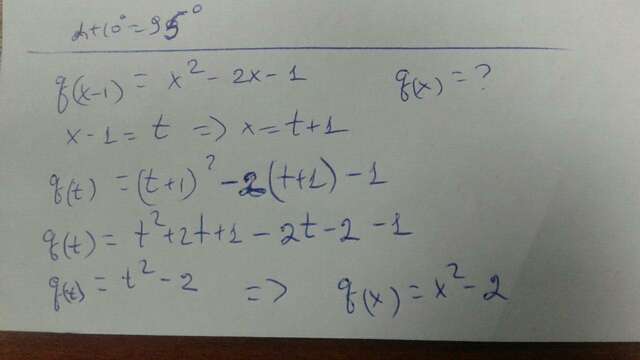 α+10°=95°
q(x-1) = x² - 2x - 1 q(x) = ?
x - 1 = t => x = t + 1
q(t) = (t+1)² - 2(t+1) - 1
q(t) = t² + 2t + 1 - 2t - 2 - 1
q(t) = t² - 2 => q(x) = x² - 2